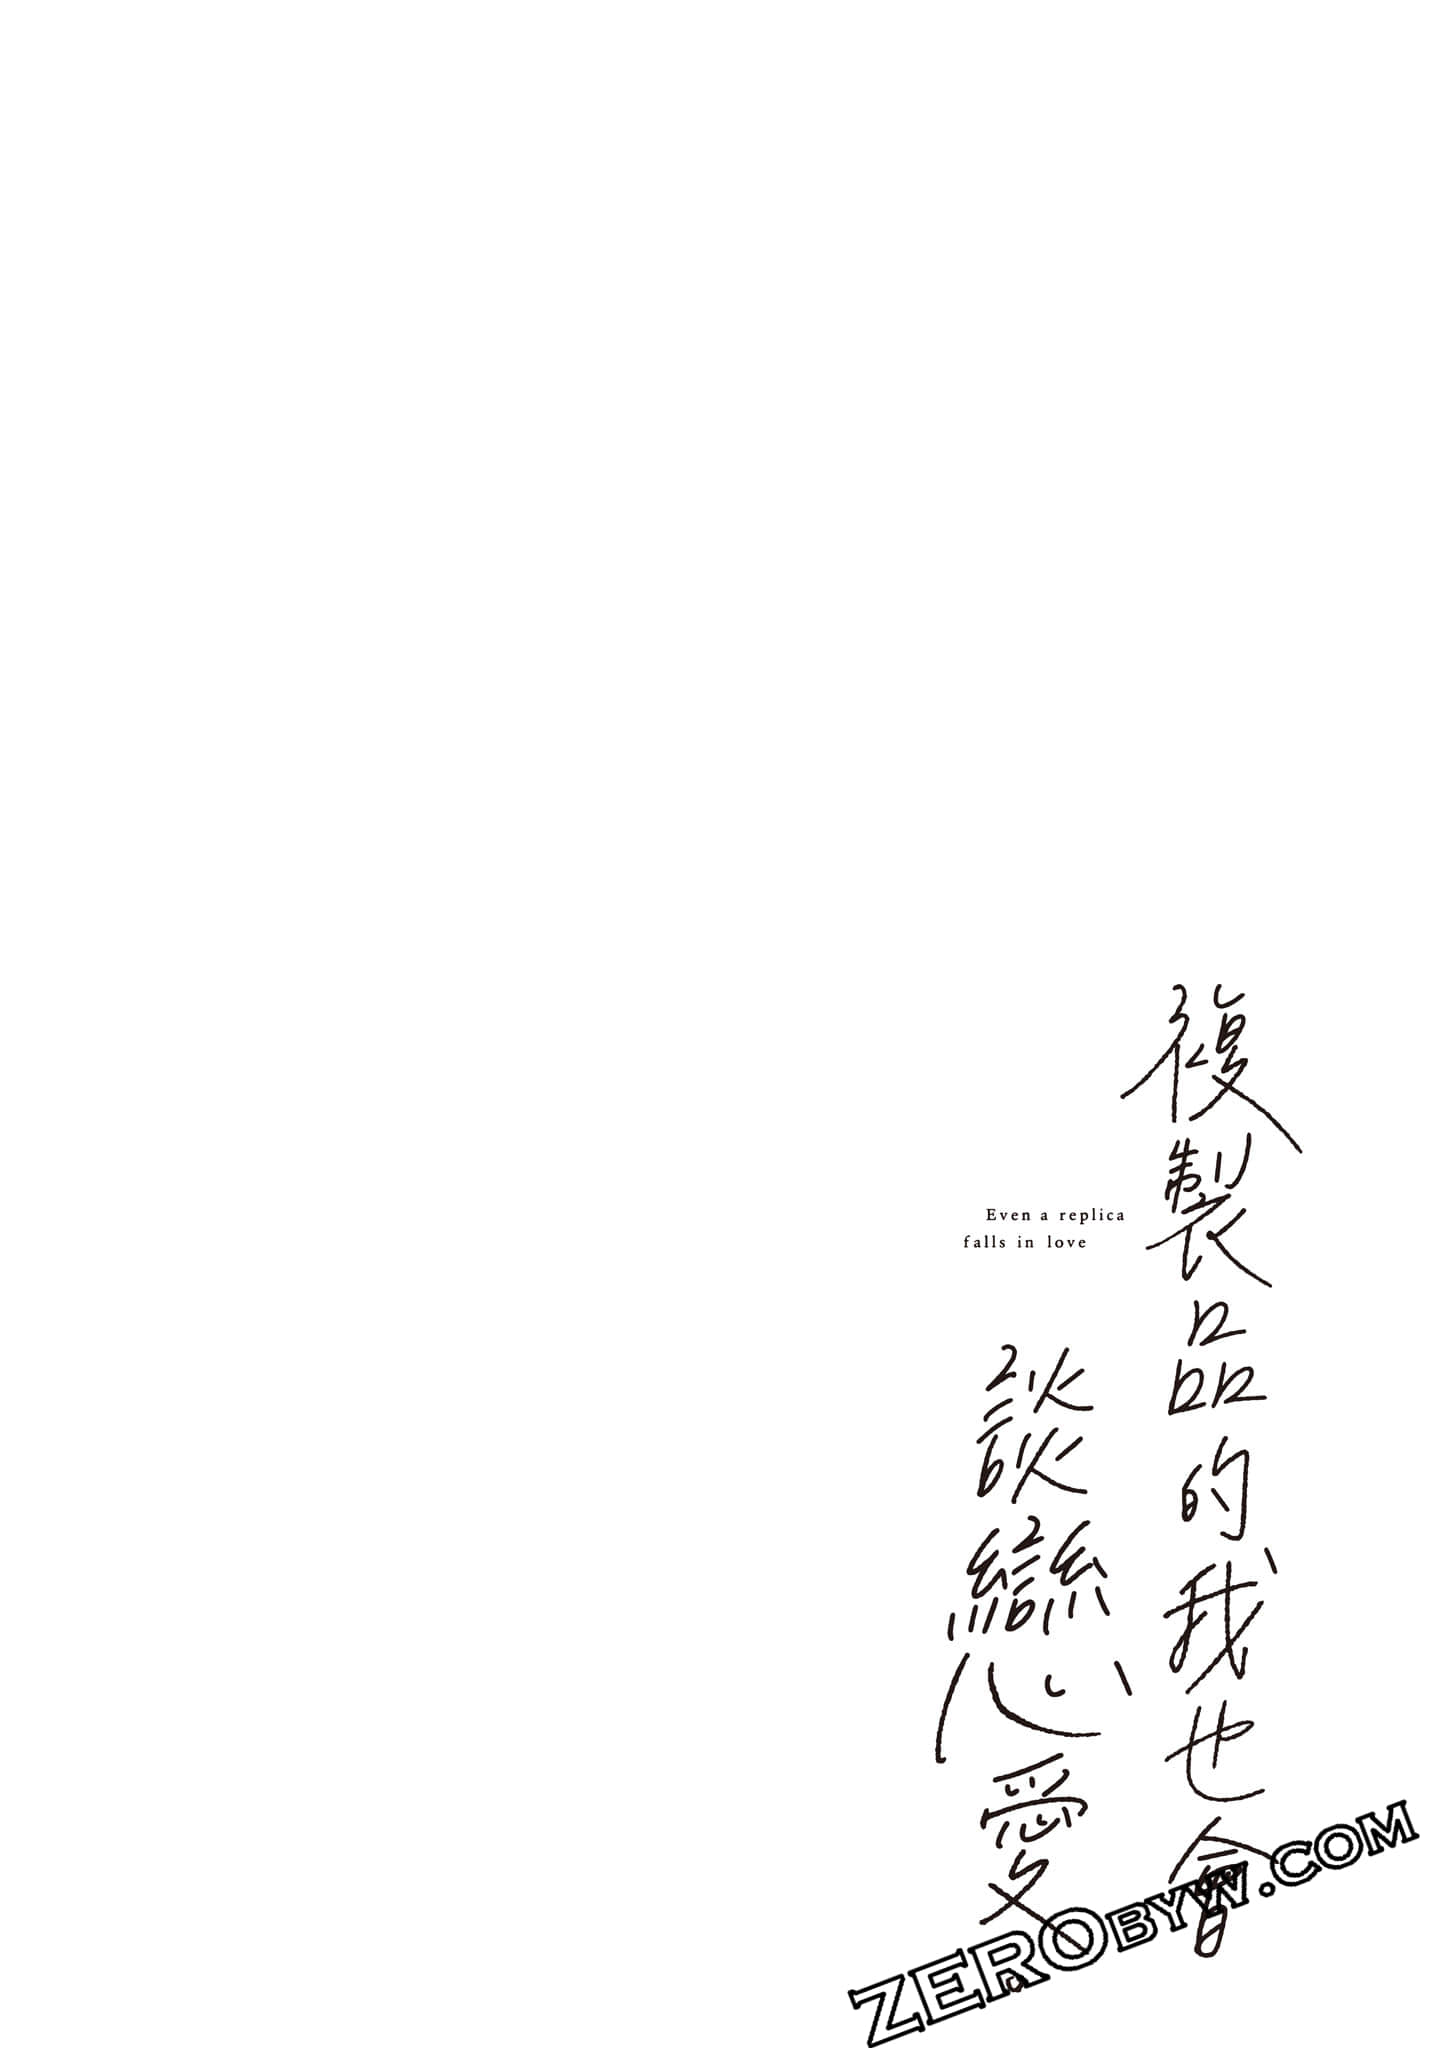 複製品的我也會
Even a replica
falls in love
談戀愛
ZEROBYW.COM